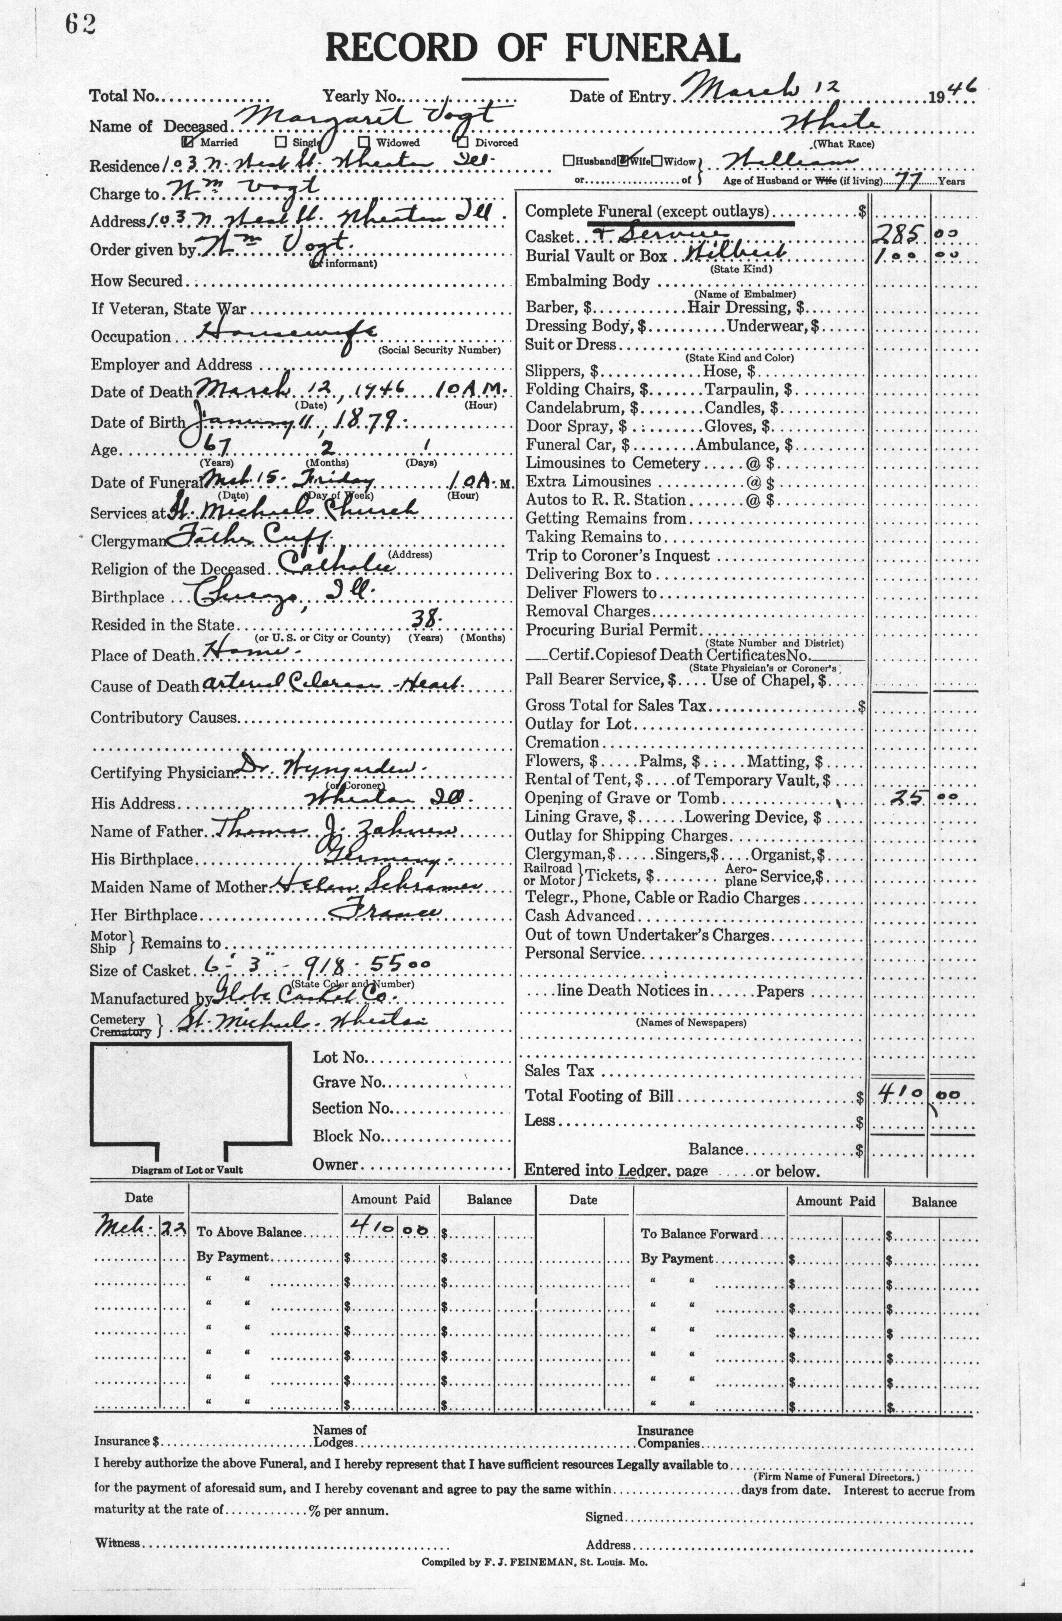 62
RECORD OF FUNERAL
Total No. Yearly No. Date of Entry March 12 1946
Name of Deceased Margaret Vogt White
Married Single Widowed Divorced (What Race)
Residence 103 N. West St. Wheaton Ill. Husband Wife Widow } William
or of } Age of Husband or Wife (if living) 77 Years
Charge to Wm Vogt
Address 103 N West St. Wheaton Ill.
Order given by Wm Vogt.
(or informant)
How Secured
If Veteran, State War
Occupation Housewife
(Social Security Number)
Employer and Address
Date of Death March 12, 1946 10 A.M.
(Date) (Hour)
Date of Birth January 11, 1879.
Age 67 2 1
(Years) (Months) (Days)
Date of Funeral Mch 15 - Friday 10 A. M.
(Date) (Day of Week) (Hour)
Services at St. Michaels Church
Clergyman Father Cuff
(Address)
Religion of the Deceased Catholic
Birthplace Chicago, Ill.
Resided in the State 38.
(or U. S. or City or County) (Years) (Months)
Place of Death Home.
Cause of Death Heart.
Contributory Causes
Certifying Physician Dr. Wyngarden.
(or Coroner)
His Address Wheaton Ill.
Name of Father Thomas J. Zahnen
His Birthplace Germany.
Maiden Name of Mother Helen Schramer
Her Birthplace France
Motor
Ship } Remains to
Size of Casket 6' - 3" - 918 - 55 00
(State Color and Number)
Manufactured by Globe Casket Co.
Cemetery
Crematory } St. Michaels - Wheaton
Lot No.
Grave No.
Section No.
Block No.
Owner
Diagram of Lot or Vault
Complete Funeral (except outlays) $
Casket & Service 285 00
Burial Vault or Box Wilbert 100 00
(State Kind)
Embalming Body
(Name of Embalmer)
Barber, $ Hair Dressing, $
Dressing Body, $ Underwear, $
Suit or Dress
(State Kind and Color)
Slippers, $ Hose, $
Folding Chairs, $ Tarpaulin, $
Candelabrum, $ Candles, $
Door Spray, $ Gloves, $
Funeral Car, $ Ambulance, $
Limousines to Cemetery @ $
Extra Limousines @ $
Autos to R. R. Station @ $
Getting Remains from
Taking Remains to
Trip to Coroner's Inquest
Delivering Box to
Deliver Flowers to
Removal Charges
Procuring Burial Permit
(State Number and District)
Certif. Copies of Death Certificates No.
(State Physician's or Coroner's)
Pall Bearer Service, $ Use of Chapel, $
Gross Total for Sales Tax $
Outlay for Lot
Cremation
Flowers, $ Palms, $ Matting, $
Rental of Tent, $ of Temporary Vault, $
Opening of Grave or Tomb 25 00
Lining Grave, $ Lowering Device, $
Outlay for Shipping Charges
Clergyman, $ Singers, $ Organist, $
Railroad
or Motor } Tickets, $ Aero-
plane Service, $
Telegr., Phone, Cable or Radio Charges
Cash Advanced
Out of town Undertaker's Charges
Personal Service
line Death Notices in Papers
(Names of Newspapers)
Sales Tax
Total Footing of Bill $ 410 00
Less $
Balance $
Entered into Ledger, page or below.
Date Amount Paid Balance Date Amount Paid Balance
Mch. 22 To Above Balance 410 00 $ To Balance Forward $
By Payment $ $ By Payment $ $
" " $ $ " " $ $
" " $ $ " " $ $
" " $ $ " " $ $
" " $ $ " " $ $
" " $ $ " " $ $
" " $ $ " " $ $
Insurance $ Names of Lodges Insurance Companies
I hereby authorize the above Funeral, and I hereby represent that I have sufficient resources Legally available to
(Firm Name of Funeral Directors.)
for the payment of aforesaid sum, and I hereby covenant and agree to pay the same within days from date. Interest to accrue from
maturity at the rate of % per annum.
Signed
Witness Address
Compiled by F. J. FEINEMAN, St. Louis. Mo.